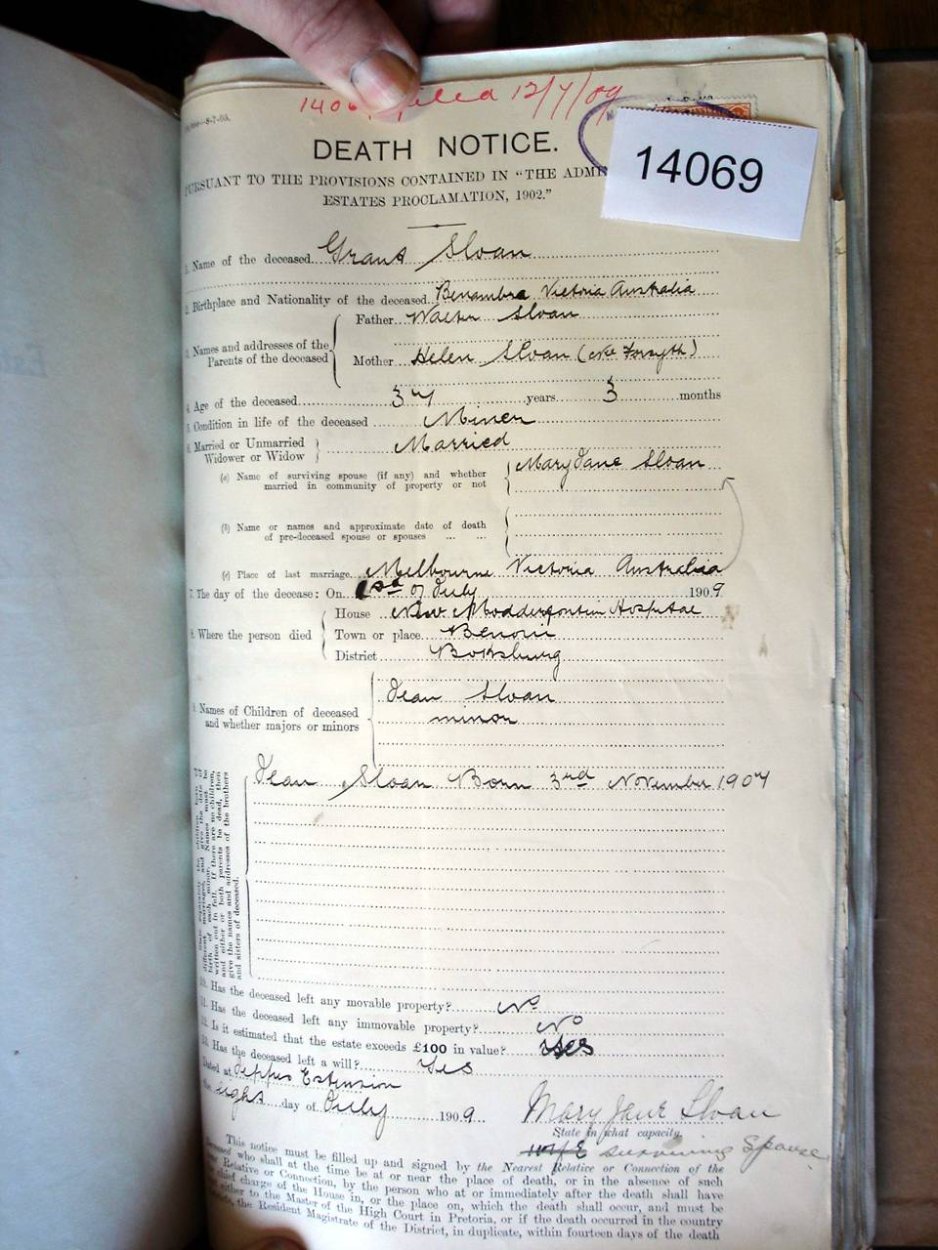 1406 filed 12/7/09
14069
DEATH NOTICE.
PURSUANT TO THE PROVISIONS CONTAINED IN "THE ADMI
ESTATES PROCLAMATION, 1902."
1. Name of the deceased Grant Sloan
2. Birthplace and Nationality of the deceased Benambra Victoria Australia
3. Names and addresses of the Parents of the deceased
Father Walter Sloan
Mother Helen Sloan (nee Forsyth)
4. Age of the deceased 37 years 3 months
5. Condition in life of the deceased Miner
6. Married or Unmarried Widower or Widow Married
(a) Name of surviving spouse (if any) and whether married in community of property or not Mary Jane Sloan
(b) Name or names and approximate date of death of pre-deceased spouse or spouses ... ...
(c) Place of last marriage Melbourne Victoria Australia
7. The day of the decease: On 1st of July 1909
8. Where the person died
House New Modderfontein Hospital
Town or place Benoni
District Boksburg
9. Names of Children of deceased and whether majors or minors
Jean Sloan
minor
Jean Sloan Born 3rd November 1907
give the names and addresses of the brothers
and sisters of deceased.
10. Has the deceased left any movable property? No
11. Has the deceased left any immovable property? No
12. Is it estimated that the estate exceeds £100 in value? Yes
13. Has the deceased left a will? Yes
Dated at Jeppes Extension
the eight day of July 1909
Mary Jane Sloan
State in what capacity
wife surviving Spouse
This notice must be filled up and signed by the Nearest Relative or Connection of the
who shall at the time be at or near the place of death, or in the absence of such
Relative or Connection, by the person who at or immediately after the death shall have
chief charge of the House in, or the place on, which the death shall occur, and must be
either to the Master of the High Court in Pretoria, or if the death occurred in the country
the Resident Magistrate of the District, in duplicate, within fourteen days of the death